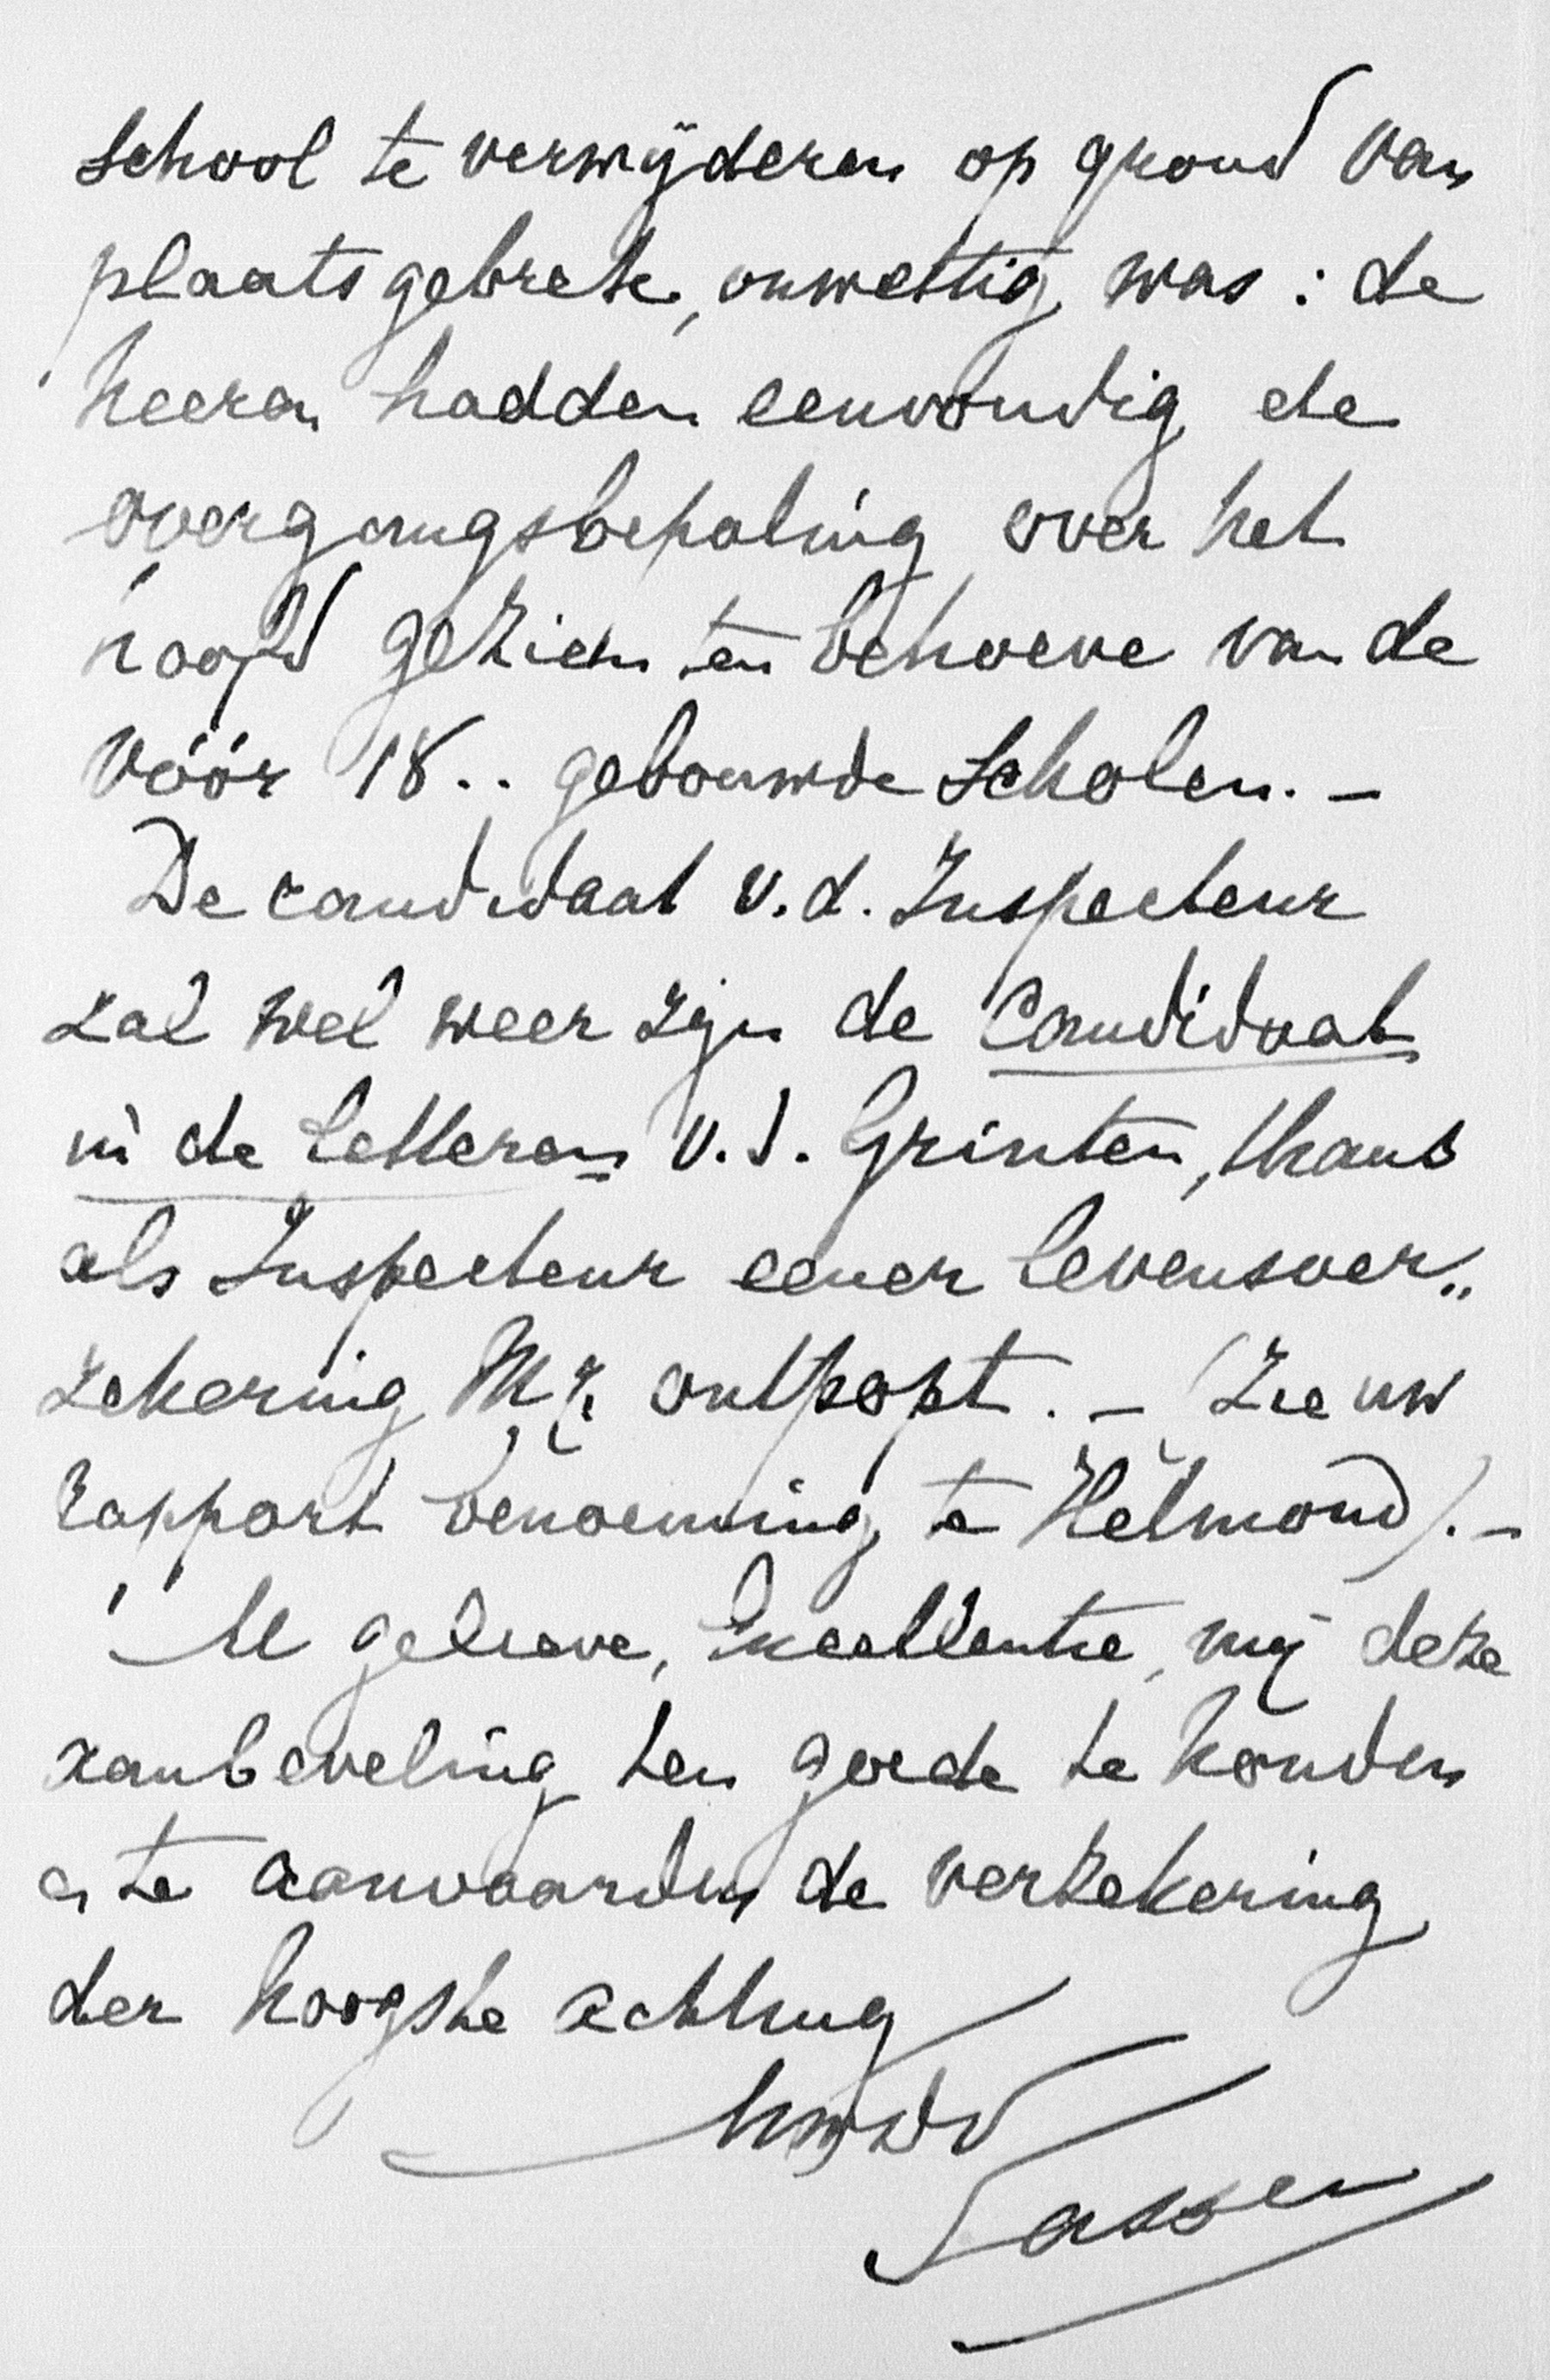 school te verwijderen op grond van
plaatsgebrek, onwettig was: de
heeren hadden eenvoudig de
overgangsbepaling over het
hoofd gezien ten behoeve van de
vóór 18.. gebouwde scholen. –
De candidaat v. d. Inspecteur
zal wel weer zijn de Candidaat
in de letteren v. d. Grinten, thans
als Inspecteur eener levensver„
zekering Mij. ontpopt. – (Zie uw
rapport benoeming te Helmond). –
U gelieve, Excellentie, mij deze
aanbeveling ten goede te houden
en te aanvaarden de verzekering
der hoogste achting
Sassen